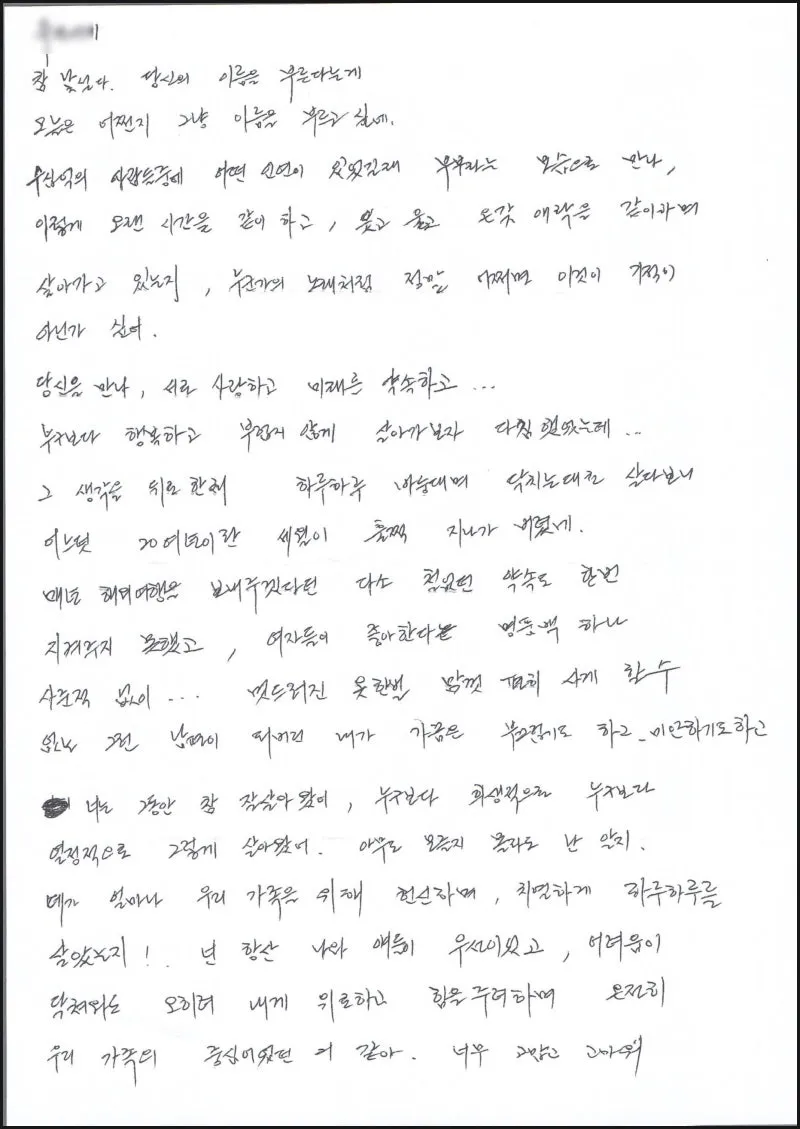 참 낯설다. 당신의 이름을 부른다는게
오늘은 어쩐지 그냥 이름을 부르고 싶네.
수십억의 사람들중에 어떤 인연이 있었길래 부부라는 모습으로 만나,
이렇게 오랜 시간을 같이 하고, 웃고 울고 온갖 애락을 같이하며
살아가고 있는지, 누군가의 노래처럼 정말 어쩌면 이것이 기적이
아닌가 싶어.
당신을 만나, 서로 사랑하고 미래를 약속하고...
누구보다 행복하고 부럽지 않게 살아가보자 다짐 했었는데...
그 생각을 뒤로한채 하루하루 바둥대며 닥치는대로 살다보니
어느덧 20여년이란 세월이 훌쩍 지나가 버렸네.
매년 해외여행을 보내주겠다던 다소 철없던 약속도 한번
지켜주지 못했고, 여자들이 좋아한다는 명품백 하나
사준적 없이... 멋드러진 옷한벌 맘껏 편히 사게 할수
없는 그런 남편이 되버린 내가 가끔은 부끄럽기도 하고 미안하기도하고
너는 그동안 참 잘살아 왔어, 누구보다 희생적으로 누구보다
열정적으로 그렇게 살아왔어. 아무도 모를지 몰라도 난 알지.
네가 얼마나 우리 가족을 위해 헌신하며, 치열하게 하루하루를
살았는지! 넌 항상 나와 애들이 우선이었고, 어려움이
닥쳐와도 오히려 내게 위로하고 힘을주려하며 온전히
우리 가족의 중심이었던 거 같아. 너무 고맙고 고마워